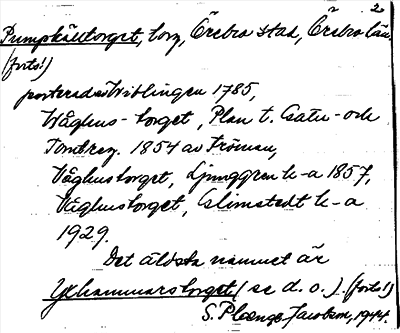 2
Pumpkälltorget, torg, Örebro stad, Örebro län
(forts!)
Wiblingen 1785,
Wåghus-torget, Plan t. Gatu- och
Tomtreg. 1854 av Fröman,
Våghustorget, Ljunggren k-a 1857,
Våghustorget, Almstedt k-a
1929.
Det äldsta namnet är
Yxhammarstorget (se d. o.). (forts!)
S. Jacobson, 1944.